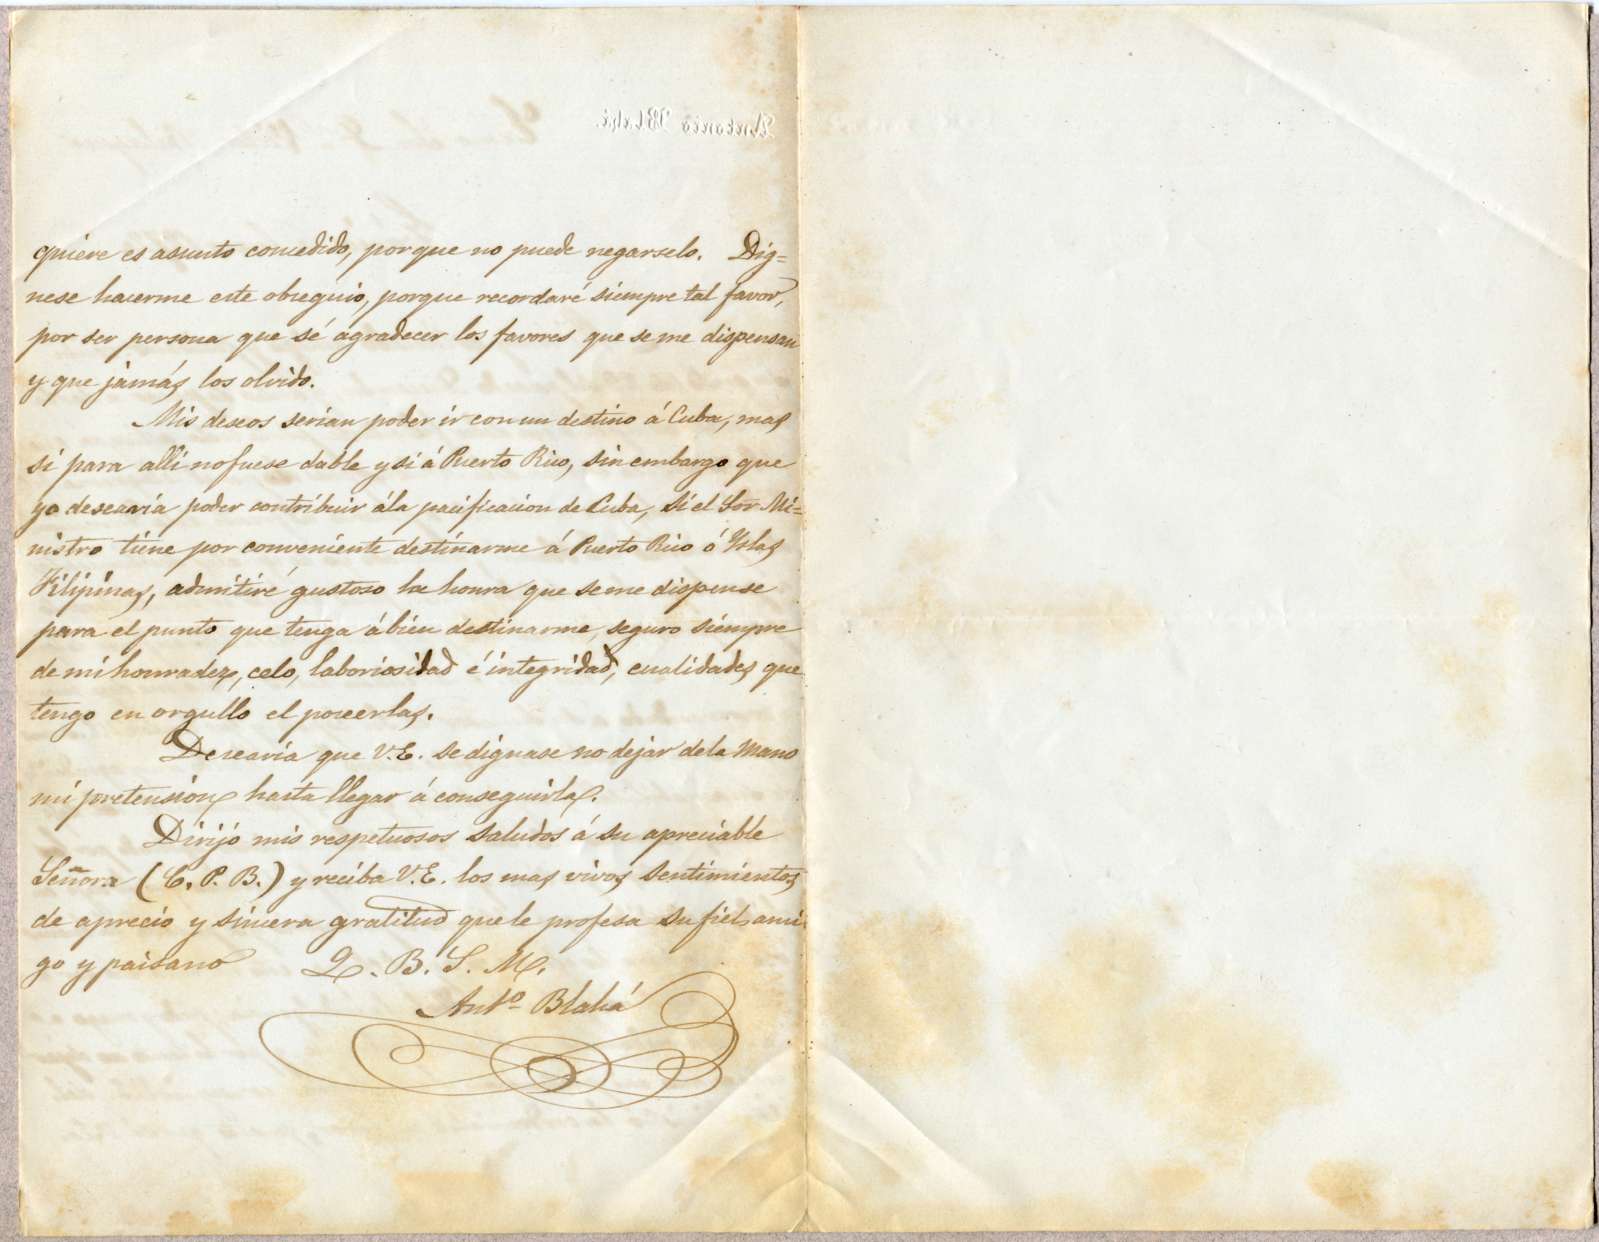 Antonio Blahá.
quiere es asunto concedido, porque no puede negarselo. Díg=
nese hacerme este obsequio, porque recordaré siempre tal favor,
por ser persona que sé agradecer los favores que se me dispensan
y que jamás los olvido.
Mis deseos serian poder ir con un destino á Cuba, mas
si para alli no fuese dable y si á Puerto Rico, sin embargo que
yo desearía poder contribuir á la pacificacion de Cuba, si el Sor Mi=
nistro tiene por conveniente destinarme á Puerto Rico ó Yslas
Filipinas, admitiré gustoso la honra que se me dispense
para el punto que tenga á bien destinarme, seguro siempre
de mi honradez, celo, laboriosidad é integridad, cualidades que
tengo en orgullo el poseerlas.
Desearía que V.E. se dignase no dejar de la mano
mi pretension, hasta llegar á conseguirla.
Dirijo mis respetuosos saludos á su apreciable
Señora (C. P. B.) y reciba V.E. los mas vivos sentimientos
de aprecio y sincera gratitud que le profesa su fiel ami
go y paisano Q. B. S. M.
Antº Blahá